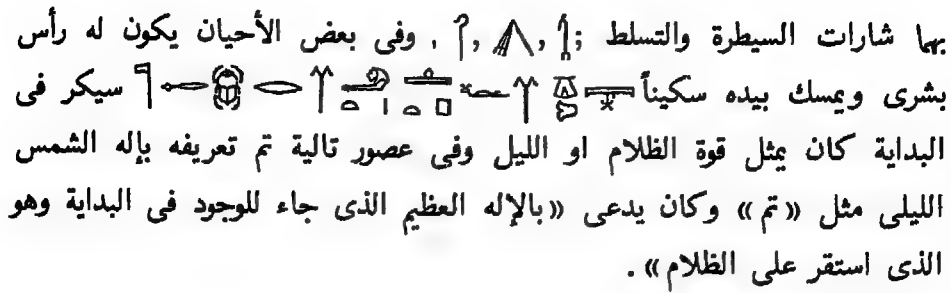 بها شارات السيطرة والتسلط ; , , , وفى بعض الأحيان يكون له رأس
بشرى ويمسك بيده سكيناً سيكر فى
البداية كان يمثل قوة الظلام او الليل وفى عصور تالية تم تعريفه بإله الشمس
الليلى مثل «تم» وكان يدعى «بالإله العظيم الذى جاء للوجود فى البداية وهو
الذى استقر على الظلام».